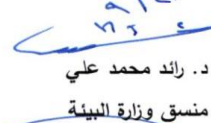 د. رائد محمد علي
منسق وزارة البيئة